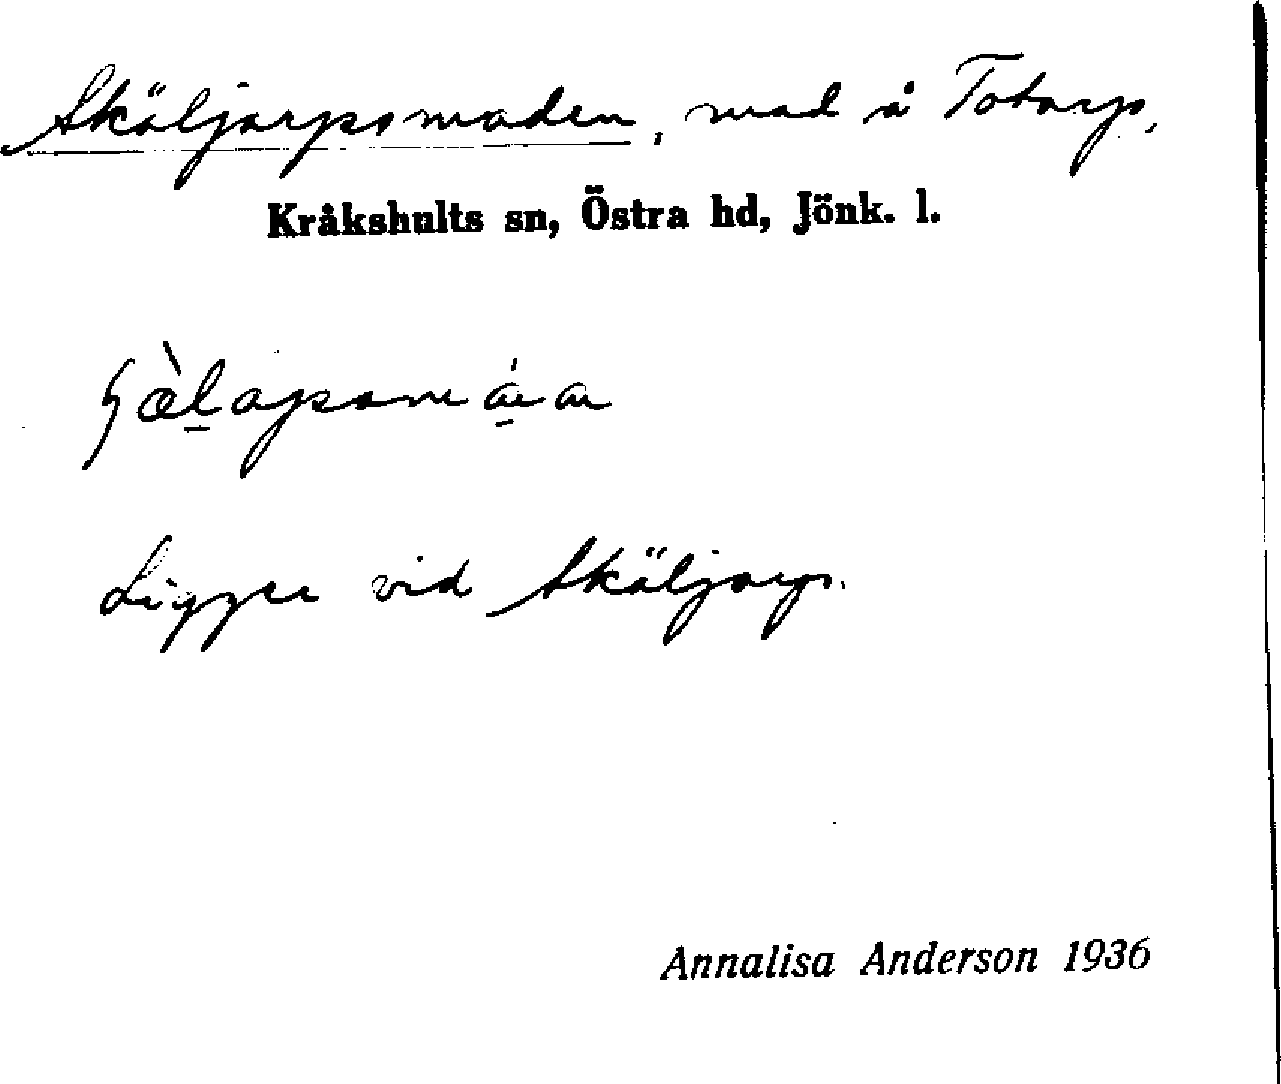 Skäljarpsmaden, mad å Totarp,
Kråkshults sn, Östra hd, Jönk. l.
Ligger vid Skäljarp.
Annalisa Anderson 1936